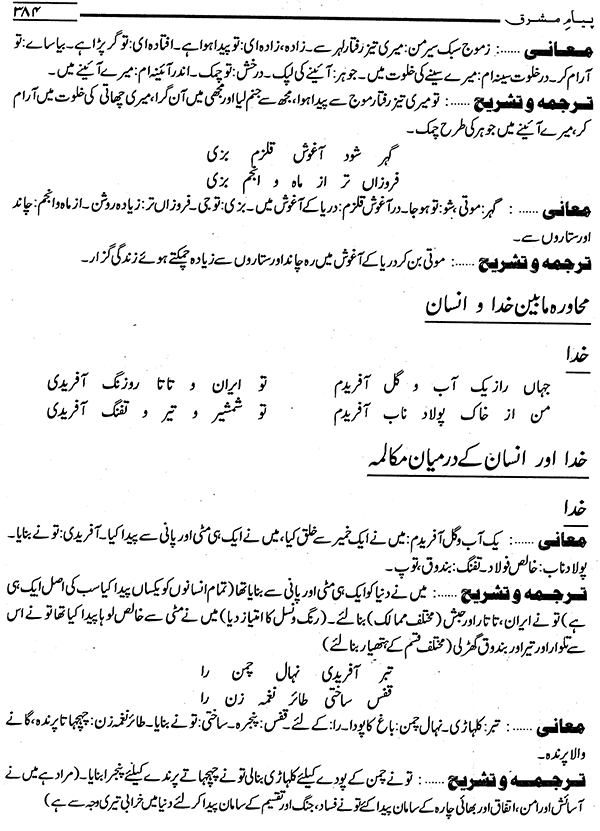 پیامِ مشرق ۳۸۴
معانی ......: زموج سبک سیر من: میری تیز رفتار لہر سے۔ زادہ، زادہ ای: تو پیدا ہوا ہے۔ افتادہ ای: تو گر پڑا ہے۔ بیاساے: تو
آرام کر۔ در خلوت سینہ ام: میرے سینے کی خلوت میں۔ جوہر: آئینے کی لپک۔ درخش: تو چمک۔ اندر آئینہ ام: میرے آئینے میں۔
ترجمہ و تشریح ......: تو میری تیز رفتار موج سے پیدا ہوا، مجھ سے جنم لیا اور مجھی میں آن گرا، میری چھاتی کی خلوت میں آرام
کر، میرے آئینے میں جوہر کی طرح چمک۔
گہر شود آغوش قلزم بزی
فروزاں تر از ماہ و انجم بزی
معانی ...... : گہر: موتی بشو: تو ہو جا۔ در آغوش قلزم: دریا کے آغوش میں۔ بزی: تو جی۔ فروزاں تر: زیادہ روشن۔ از ماہ و انجم: چاند
اور ستاروں سے۔
ترجمہ و تشریح ......: موتی بن کر دریا کے آغوش میں رہ چاند اور ستاروں سے زیادہ چمکتے ہوئے زندگی گزار۔
محاورہ مابین خدا و انسان
خدا
جہاں را زیک آب و گل آفریدم تو ایران و تاتا روزنگ آفریدی
من از خاک پولاد ناب آفریدم تو شمشیر و تیر و تفنگ آفریدی
خدا اور انسان کے درمیان مکالمہ
خدا
معانی ......: یک آب و گل آفریدم: میں نے ایک خمیر سے خلق کیا، میں نے ایک ہی مٹی اور پانی سے پیدا کیا۔ آفریدی: تو نے بنایا۔
پولاد ناب: خالص فولاد۔ تفنگ: بندوق، توپ۔
ترجمہ و تشریح ......: میں نے دنیا کو ایک ہی مٹی اور پانی سے بنایا تھا (تمام انسانوں کو یکساں پیدا کیا سب کی اصل ایک ہی
ہے) تو نے ایران، تاتار اور حبش (مختلف ممالک) بنا لئے۔ (رنگ و نسل کا امتیاز دیا) میں نے مٹی سے خالص لوہا پیدا کیا تھا تو نے اس
سے تلوار اور تیر اور بندوق گھڑ لی (مختلف قسم کے ہتھیار بنا لئے)
تبر آفریدی نہال چمن را
قفس ساختی طائر نغمہ زن را
معانی ......: تبر: کلہاڑی۔ نہال چمن: باغ کا پودا۔ را: کے لئے۔ قفس: پنجرہ۔ ساختی: تو نے بنایا۔ طائر نغمہ زن: چہچہاتا پرندہ، گانے
والا پرندہ۔
ترجمہ و تشریح ......: تو نے چمن کے پودے کیلئے کلہاڑی بنالی تو نے چہچہاتے پرندے کیلئے پنجرا بنایا۔ (مراد ہے میں نے
آسائش اور امن، اتفاق اور بھائی چارہ کے سامان پیدا کئے تو نے فساد، جنگ اور تقسیم کے سامان پیدا کر لئے دنیا میں خرابی تیری وجہ سے ہے)